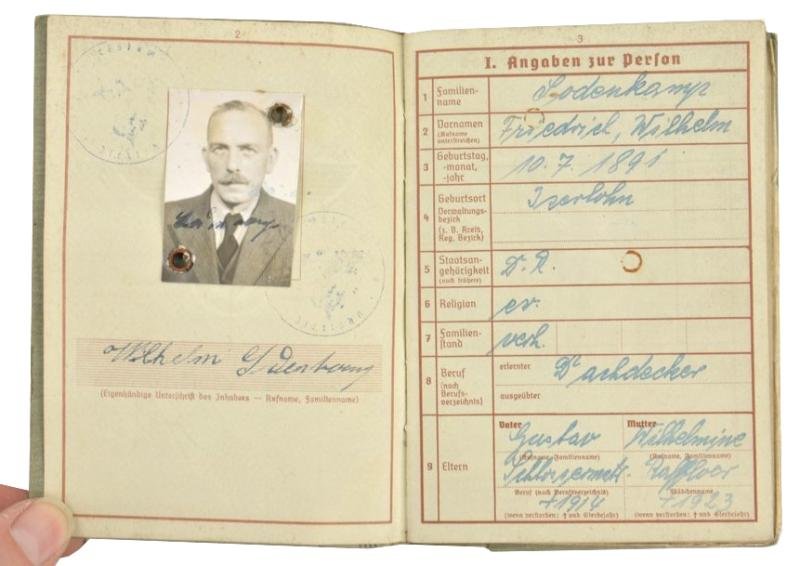 2
(Eigenhändige Unterschrift des Inhabers — Rufname, Familienname)
3
I. Angaben zur Person
1 Familien-
name
2 Vornamen
(Rufname
unterstreichen)
Friedrich, Wilhelm
3 Geburtstag,
-monat,
-jahr
10. 7. 1891
4 Geburtsort
Verwaltungs-
bezirk
(z. B. Kreis,
Reg. Bezirk)
Iserlohn
5 Staatsan-
gehörigkeit
(auch frühere)
D. R.
6 Religion
ev.
7 Familien-
stand
verh.
8 Beruf
(nach
Berufs-
verzeichnis)
erlernter
Dachdecker
ausgeübter
9 Eltern
Vater Mutter
Gustav Wilhelmine
(Rufname, Familienname) (Rufname, Familienname)
Beruf (nach Berufsverzeichnis) Mädchenname
†1914 †1923
(wenn verstorben: † und Sterbejahr) (wenn verstorben: † und Sterbejahr)